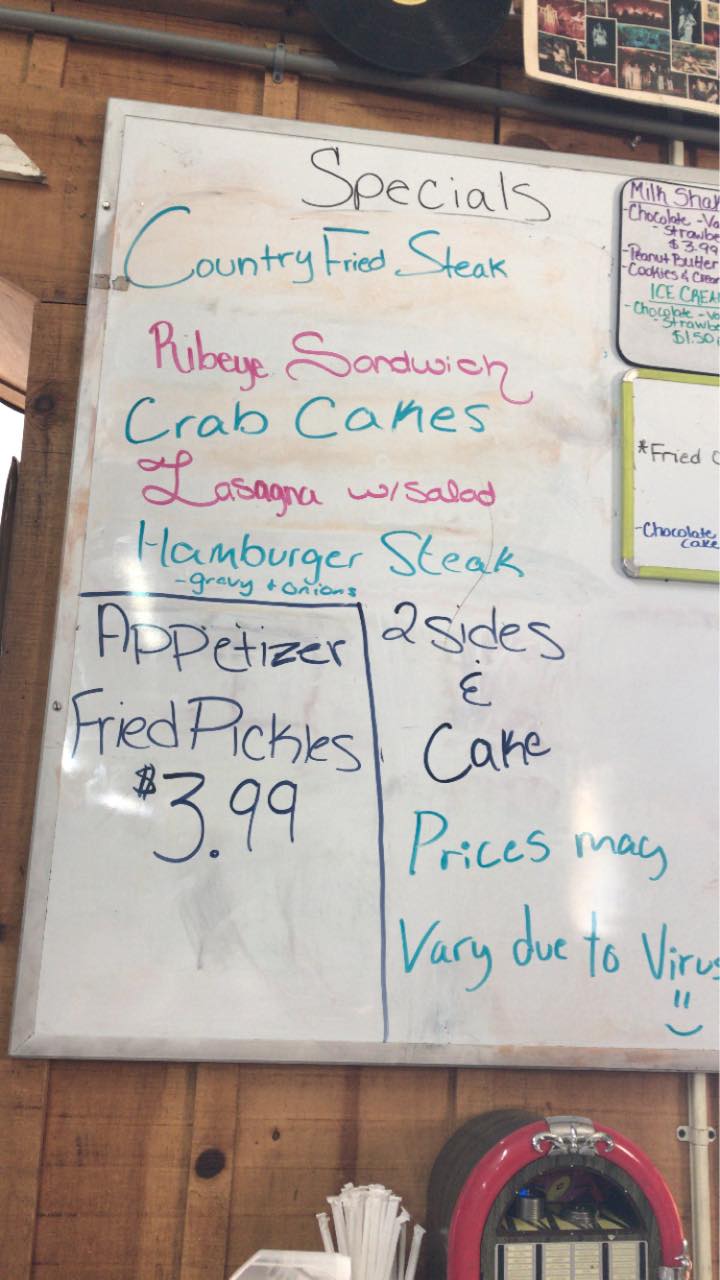 Specials
Country Fried Steak
Ribeye Sandwich
Crab Cakes
Lasagna w/salad
Hamburger Steak
-gravy + onions
Appetizer
Fried Pickles
$3.99
2 sides
&
Cake
Prices may
Vary due to Virus
Milk Shak
-Chocolate -Va
-Strawbe
$3.99
-Peanut Butter
-Cookies & Crea
ICE CREA
-Chocolate -Va
-Strawbe
$1.50
*Fried C
-Chocolate
Cake